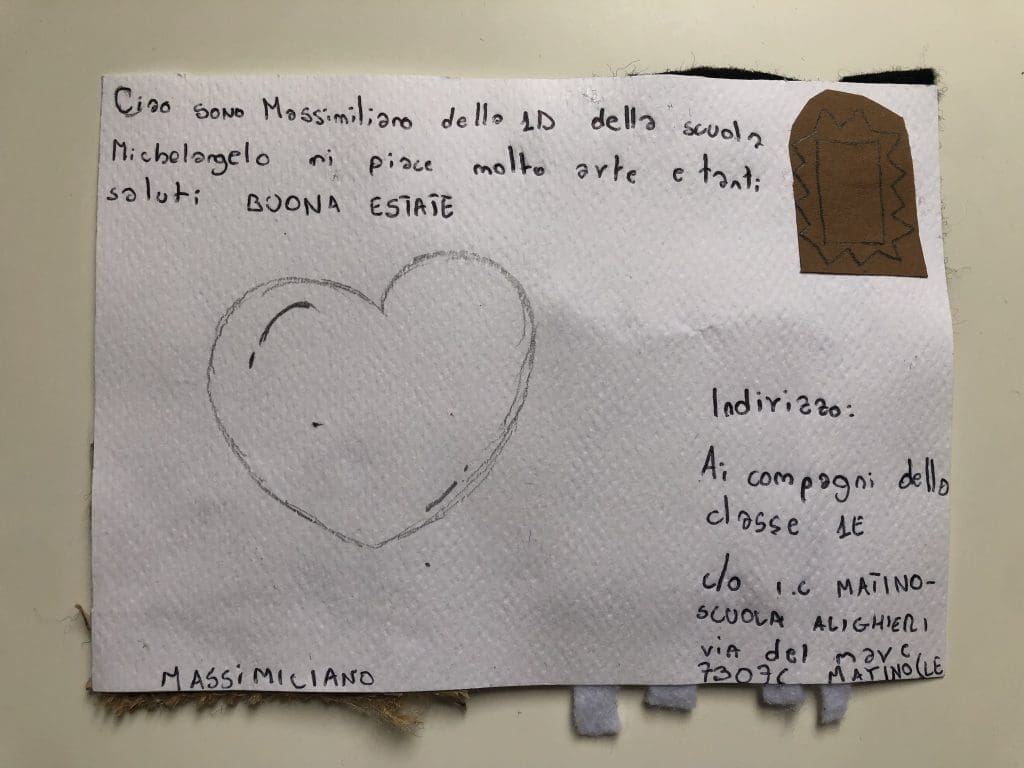 Ciao sono Massimiliano della 1D della scuola
Michelangelo mi piace molto arte e tanti
saluti BUONA ESTATE
Indirizzo:
Ai compagni della
classe 1E
c/o I.C MATINO-
SCUOLA ALIGHIERI
via del mare
MATINO(LE
MASSIMILIANO